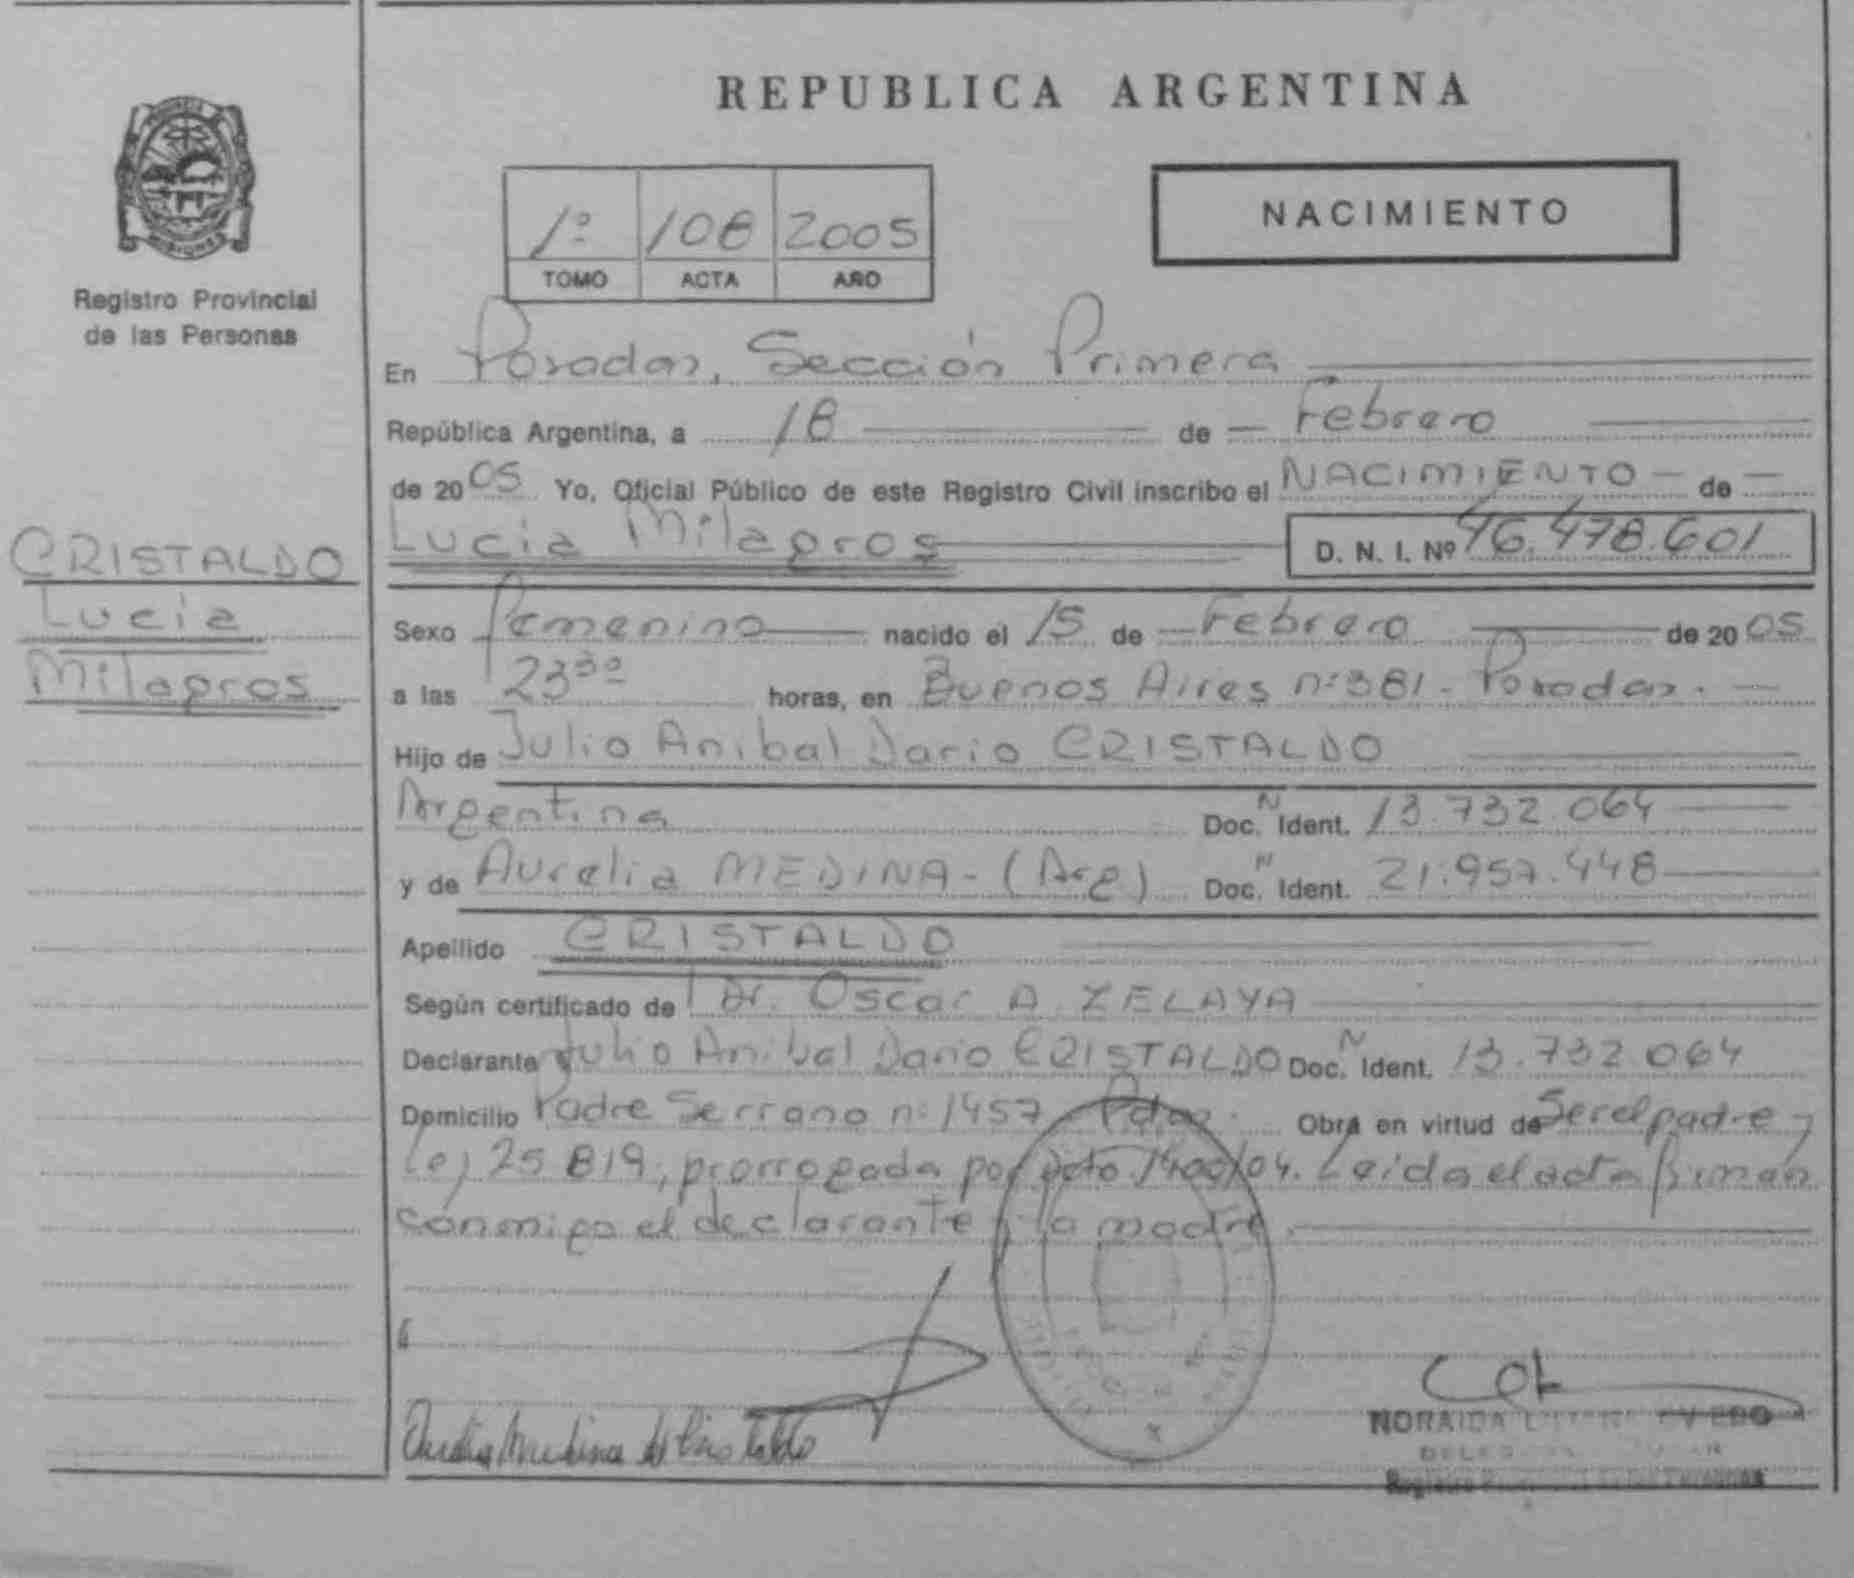 REPUBLICA ARGENTINA
MISIONES
Registro Provincial
de las Personas
NACIMIENTO
1º 108 2005
TOMO ACTA AÑO
En Posadas, Sección Primera
República Argentina, a 18 de Febrero
de 2005 Yo, Oficial Público de este Registro Civil inscribo el NACIMIENTO de
Lucia Milagros D. N. I. Nº 46.478.601
CRISTALDO
Lucia
Milagros
Sexo femenino nacido el 15 de Febrero de 2005
a las 23³⁰ horas, en Buenos Aires nº 381 - Posadas.
Hijo de Julio Anibal Dario CRISTALDO
Argentina Doc. N Ident. 13.732.064
y de Aurelia MEDINA - (Arg) Doc. N Ident. 21.957.448
Apellido CRISTALDO
Según certificado de Dr. Oscar A. ZELAYA
Declarante Julio Anibal Dario CRISTALDO Doc. N Ident. 13.732.064
Domicilio Padre Serrano nº 1457 Pdas. Obra en virtud de Ser el padre y
ley 25 819, prorrogada por Dcto. 1400/04. Leida el acta firman
conmigo el declarante y la madre.
Aurelia Medina de Cristaldo
NORAIDA